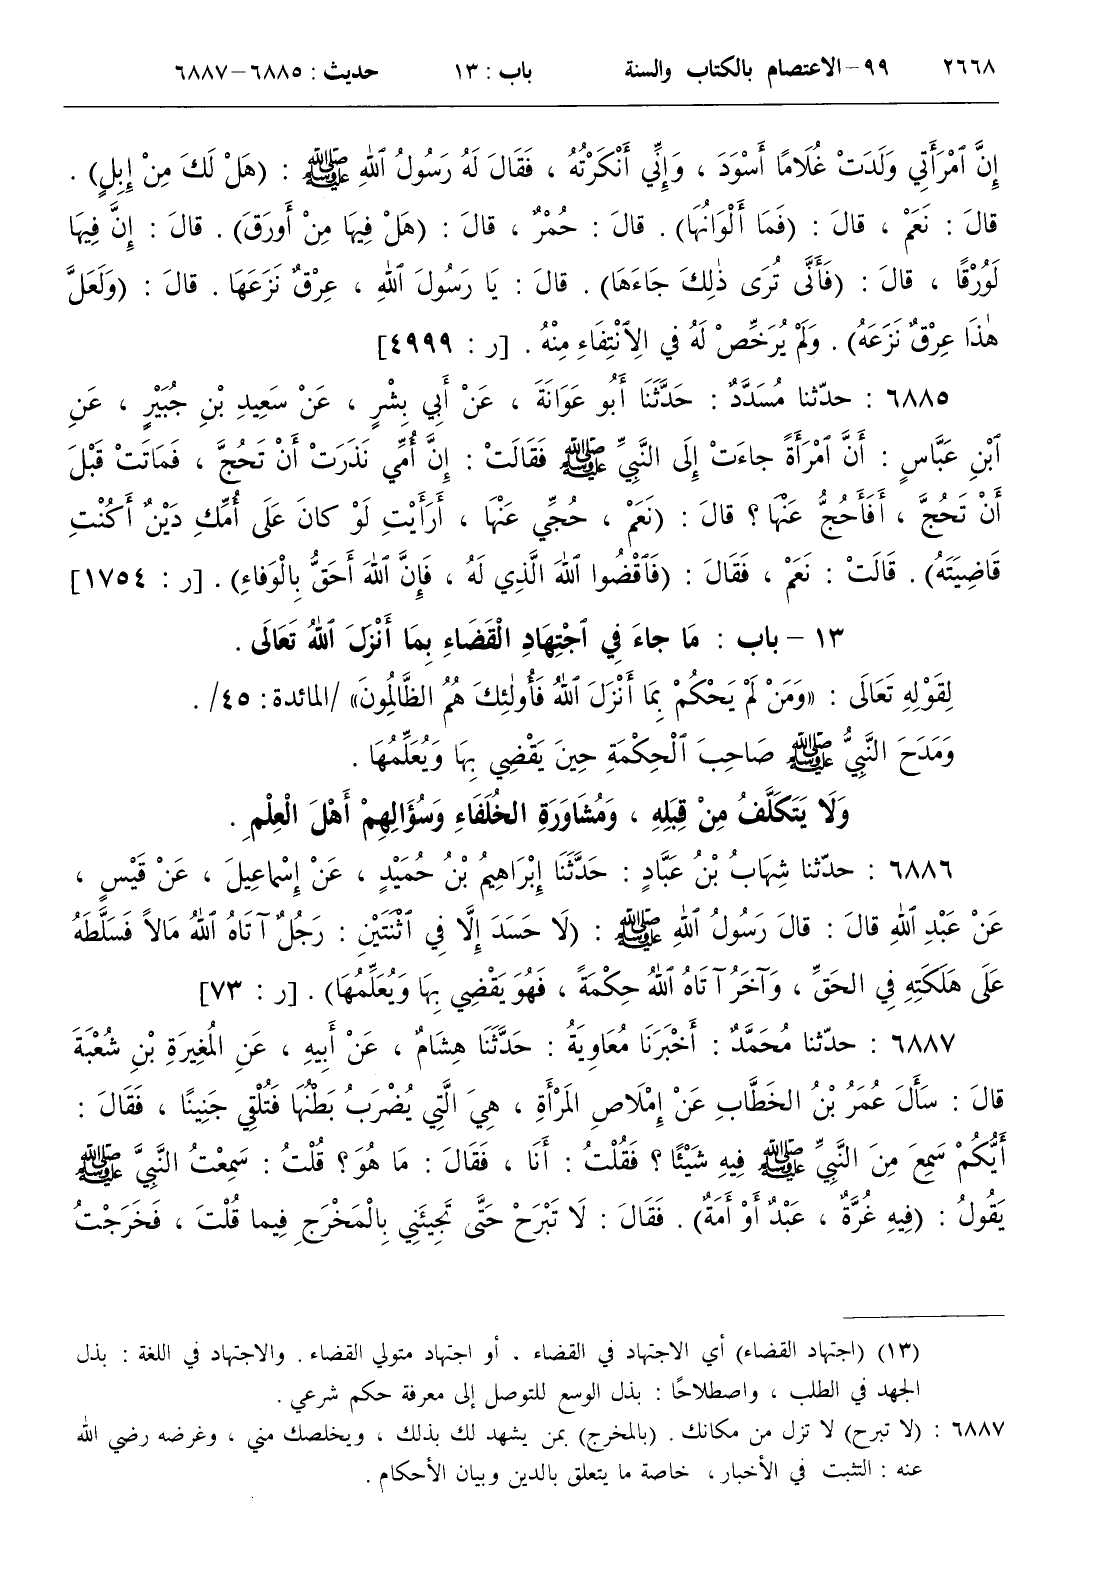 ٢٦٦٨ ٩٩ – الاعتصام بالكتاب والسنة باب : ١٣ حديث : ٦٨٨٥–٦٨٨٧
إِنَّ ٱمْرَأَتِي وَلَدَتْ غُلَامًا أَسْوَدَ ، وَإِنِّي أَنْكَرْتُهُ ، فَقَالَ لَهُ رَسُولُ ٱللهِ ﷺ : (هَلْ لَكَ مِنْ إِبِلٍ) .
قالَ : نَعَمْ ، قالَ : (فَمَا أَلْوَانُهَا) . قالَ : حُمْرٌ ، قالَ : (هَلْ فِيهَا مِنْ أَورَقَ) . قالَ : إِنَّ فِيهَا
لَوُرْقًا ، قالَ : (فَأَنَّى تُرَى ذٰلِكَ جَاءَهَا) . قالَ : يَا رَسُولَ ٱللهِ ، عِرْقٌ نَزَعَهَا . قالَ : (وَلَعَلَّ
هٰذَا عِرْقٌ نَزَعَهُ) . وَلَمْ يُرَخِّصْ لَهُ فِي الِٱنْتِفَاءِ مِنْهُ . [ر : ٤٩٩٩]
٦٨٨٥ : حدّثنا مُسَدَّدٌ : حَدَّثَنَا أَبُو عَوَانَةَ ، عَنْ أَبِي بِشْرٍ ، عَنْ سَعِيدِ بْنِ جُبَيْرٍ ، عَنِ
ٱبْنِ عَبَّاسٍ : أَنَّ ٱمْرَأَةً جاءَتْ إِلَى النَّبِيِّ ﷺ فَقَالَتْ : إِنَّ أُمِّي نَذَرَتْ أَنْ تَحُجَّ ، فَمَاتَتْ قَبْلَ
أَنْ تَحُجَّ ، أَفَأَحُجُّ عَنْهَا ؟ قالَ : (نَعَمْ ، حُجِّي عَنْهَا ، أَرَأَيْتِ لَوْ كانَ عَلَى أُمِّكِ دَيْنٌ أَكُنْتِ
قَاضِيَتَهُ) . قَالَتْ : نَعَمْ ، فَقَالَ : (فَٱقْضُوا ٱللهَ الَّذِي لَهُ ، فَإِنَّ ٱللهَ أَحَقُّ بِالْوَفاءِ) . [ر : ١٧٥٤]
١٣ – باب : مَا جاءَ فِي ٱجْتِهَادِ الْقَضَاءِ بِمَا أَنْزَلَ ٱللهُ تَعَالَى .
لِقَوْلِهِ تَعَالَى : «وَمَنْ لَمْ يَحْكُمْ بِمَا أَنْزَلَ ٱللهُ فَأُولٰئِكَ هُمُ الظَّالِمُونَ» /المائدة : ٤٥/ .
وَمَدَحَ النَّبِيُّ ﷺ صَاحِبَ ٱلْحِكْمَةِ حِينَ يَقْضِي بِهَا وَيُعَلِّمُهَا .
وَلَا يَتَكَلَّفُ مِنْ قِبَلِهِ ، وَمُشَاوَرَةِ الخُلَفَاءِ وَسُؤَالِهِمْ أَهْلَ الْعِلْمِ .
٦٨٨٦ : حدّثنا شِهَابُ بْنُ عَبَّادٍ : حَدَّثَنَا إِبْرَاهِيمُ بْنُ حُمَيْدٍ ، عَنْ إِسْماعِيلَ ، عَنْ قَيْسٍ ،
عَنْ عَبْدِ ٱللهِ قالَ : قالَ رَسُولُ ٱللهِ ﷺ : (لَا حَسَدَ إِلَّا فِي ٱثْنَتَيْنِ : رَجُلٌ آتَاهُ ٱللهُ مَالاً فَسَلَّطَهُ
عَلَى هَلَكَتِهِ فِي الحَقِّ ، وَآخَرُ آتَاهُ ٱللهُ حِكْمَةً ، فَهُوَ يَقْضِي بِهَا وَيُعَلِّمُهَا) . [ر : ٧٣]
٦٨٨٧ : حدّثنا مُحَمَّدٌ : أَخْبَرَنَا مُعَاوِيَةُ : حَدَّثَنَا هِشَامٌ ، عَنْ أَبِيهِ ، عَنِ المُغِيرَةِ بْنِ شُعْبَةَ
قالَ : سَأَلَ عُمَرُ بْنُ الخَطَّابِ عَنْ إِمْلَاصِ المَرْأَةِ ، هِيَ الَّتِي يُضْرَبُ بَطْنُهَا فَتُلْقِي جَنِينًا ، فَقَالَ :
أَيُّكُمْ سَمِعَ مِنَ النَّبِيِّ ﷺ فِيهِ شَيْئًا ؟ فَقُلْتُ : أَنَا ، فَقَالَ : مَا هُوَ ؟ قُلْتُ : سَمِعْتُ النَّبِيَّ ﷺ
يَقُولُ : (فِيهِ غُرَّةٌ ، عَبْدٌ أَوْ أَمَةٌ) . فَقَالَ : لَا تَبْرَحْ حَتَّى تَجِيئَنِي بِالْمَخْرَجِ فِيما قُلْتَ ، فَخَرَجْتُ
(١٣) (اجتهاد القضاء) أي الاجتهاد في القضاء ، أو اجتهاد متولي القضاء . والاجتهاد في اللغة : بذل
الجهد في الطلب ، واصطلاحًا : بذل الوسع للتوصل إلى معرفة حكم شرعي .
٦٨٨٧ : (لا تبرح) لا تزل من مكانك . (بالمخرج) بمن يشهد لك بذلك ، ويخلصك مني ، وغرضه رضي الله
عنه : التثبت في الأخبار ، خاصة ما يتعلق بالدين وبيان الأحكام .